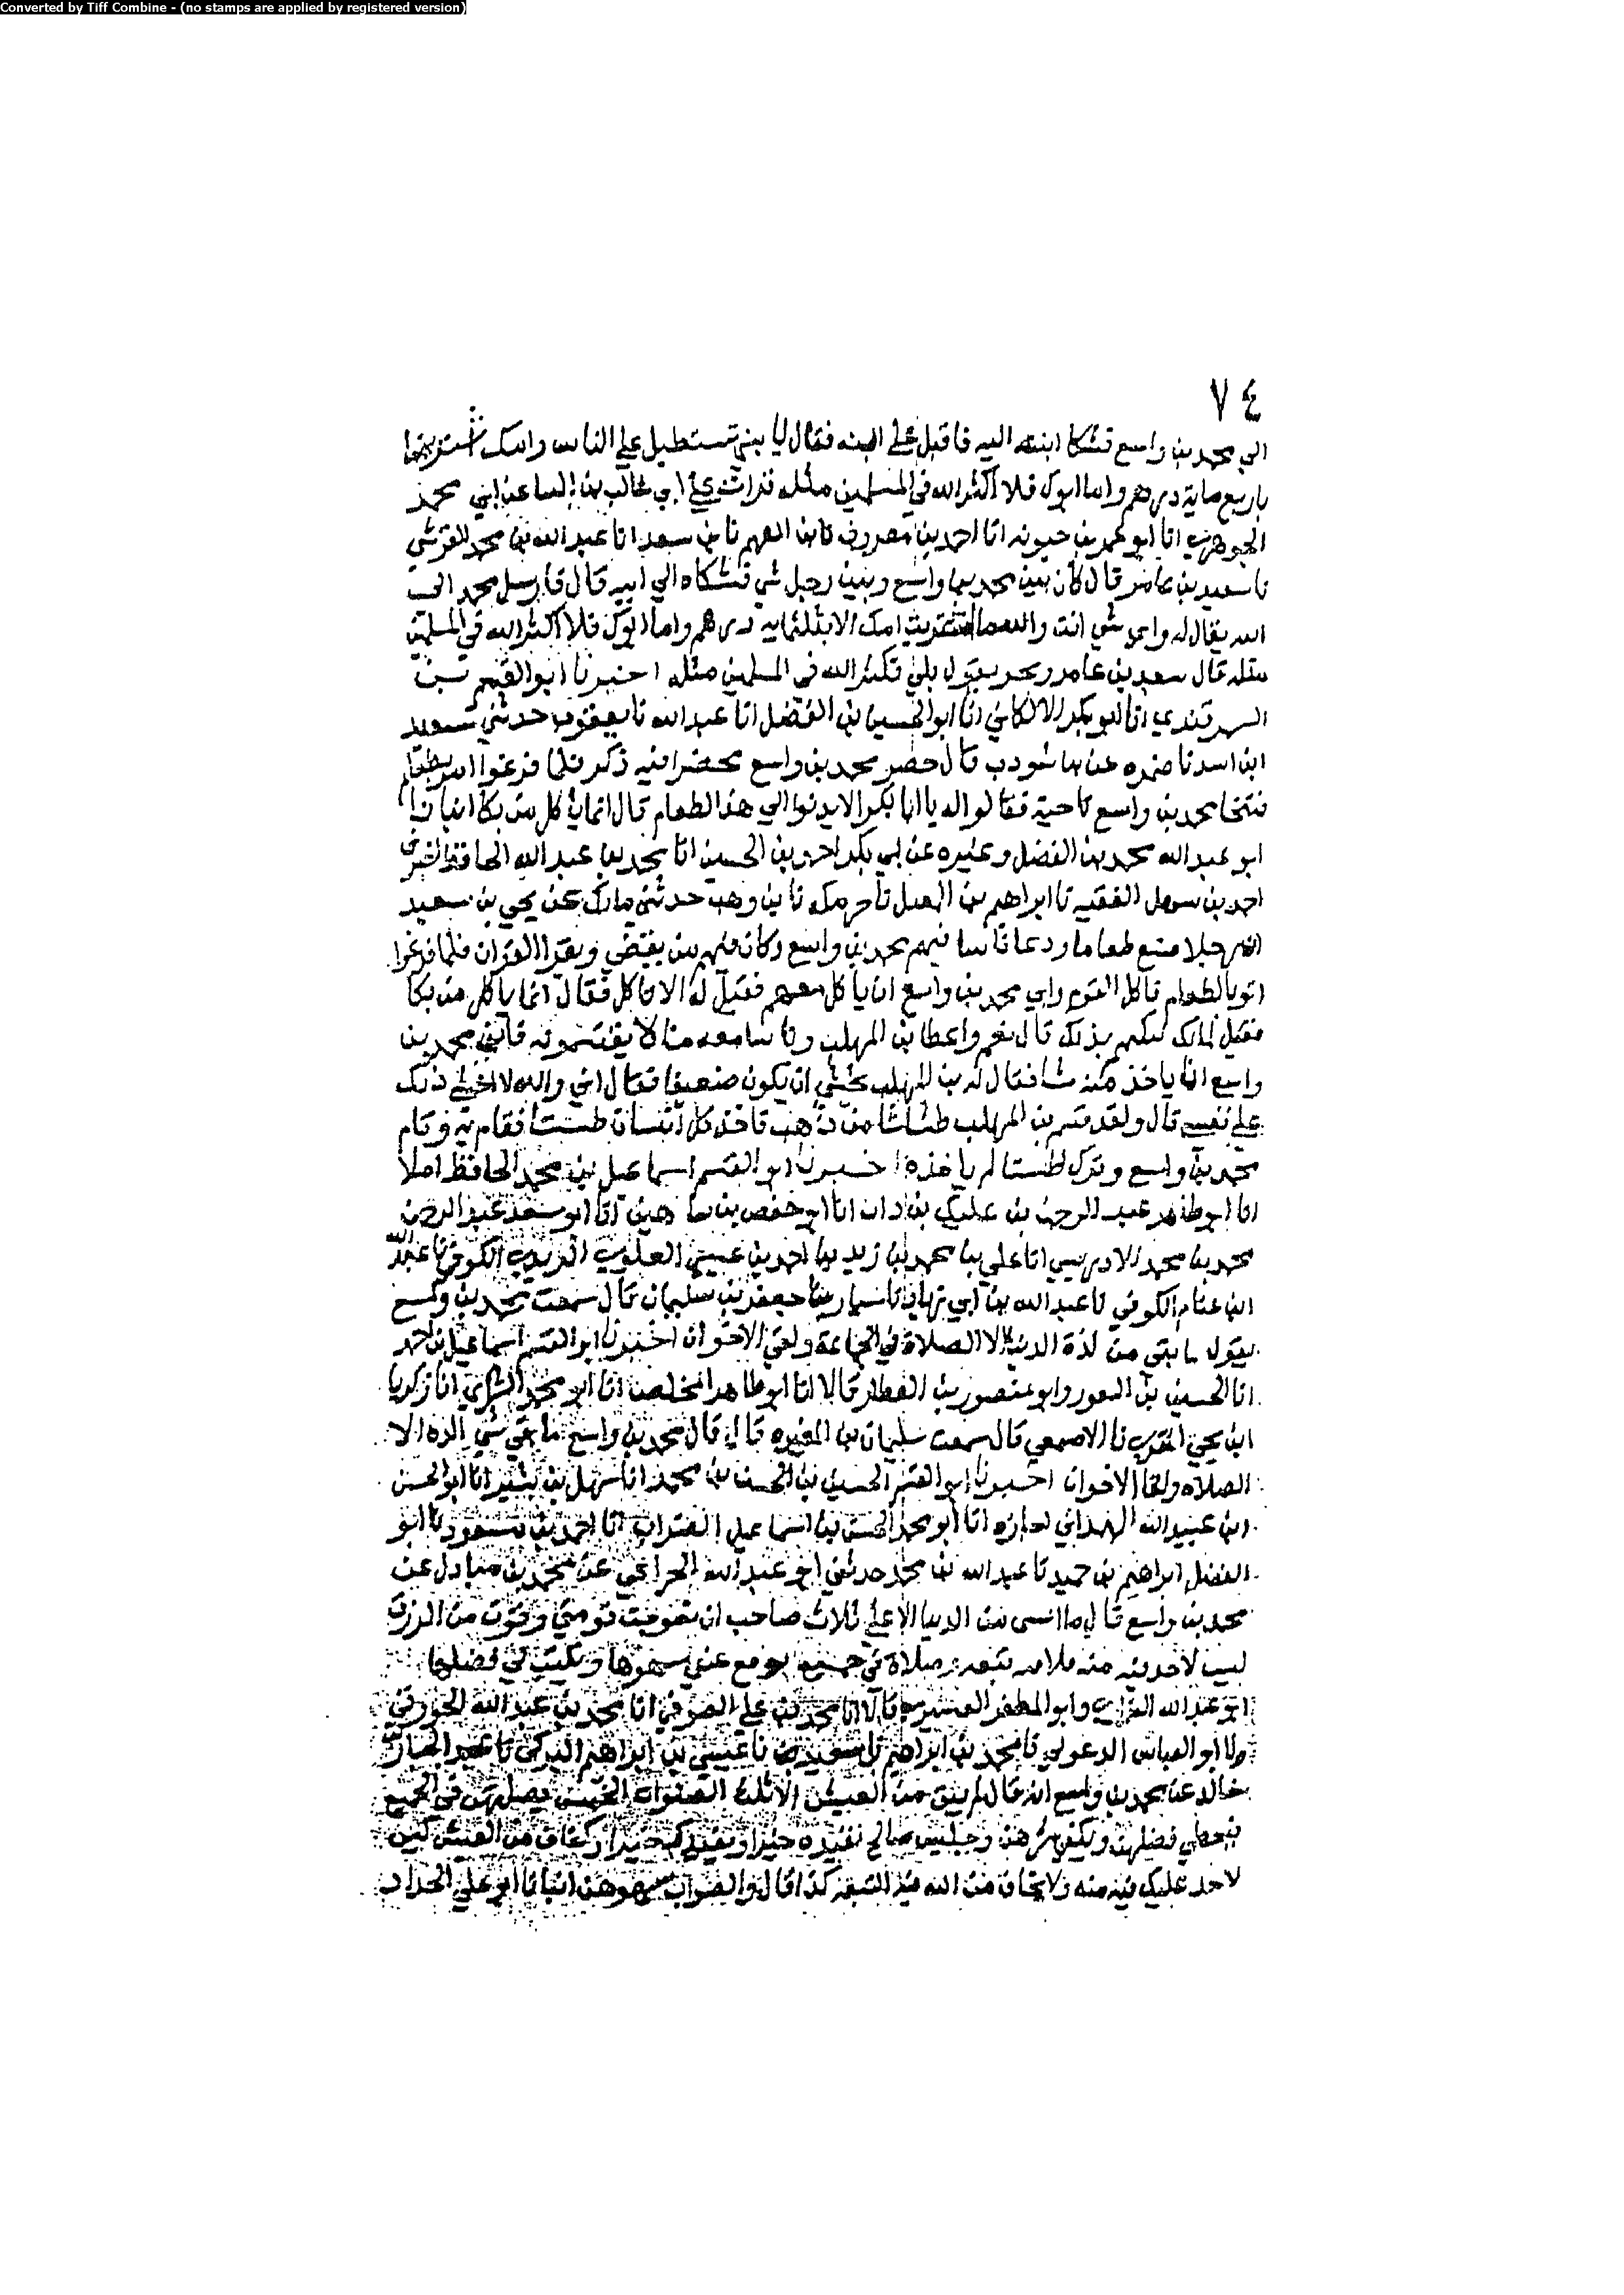 Converted by Tiff Combine - (no stamps are applied by registered version)
٧٤
الي محمد بن واسع فشكا ابنه اليه فاقبل علي ابنه فقال يا بني تستطيل علي الناس وامك اشتريتها
باربع ماية درهم واما ابوك فلا اكثر الله في المسلمين مثله قرات علي ابي غالب بن البنا عن ابي محمد
الجوهري انا ابو عمر بن حيويه انا احمد بن معروف نا بن الفهم نا بن سعد انا عبد الله بن محمد القرشي
نا سعيد بن عامر قال كان بين محمد بن واسع وبين رجل شي فشكاه الي ابيه قال فارسل محمد الي
ابنه فقال له واي شي انت والله ما اشتريت امك الا بثلثماية درهم واما ابوك فلا اكثر الله في المسلمين
مثله قال سعيد بن عامر ونحن نقول بلي فكثر الله في المسلمين مثله اخبرنا ابو القسم بن
السمرقندي انا ابو بكر الالكاني انا ابو الحسين بن الفضل انا عبد الله نا يعقوب حدثني سعيد
ابن اسد نا ضمره عن بن شوذب قال حضر محمد بن واسع محضرا فيه ذكر فلما فرغوا اتوا بطعام
فتنحا محمد بن واسع ناحية فقالوا له يا ابا بكر الا تدنوا الي هذا الطعام قال انما ياكل من بكا انبانا
ابو عبد الله محمد بن الفضل وغيره عن ابي بكر احمد بن الحسين انا محمد بن عبد الله الحافظ اخبرني
احمد بن سهل الفقيه نا ابراهيم بن نا حرمله نا بن وهب حدثني مالك عن يحيي بن سعيد
ان رجلا صنع طعاما ودعا ناسا فيهم محمد بن واسع وكان فيهم من يقضي ويقرا القران فلما فرغوا
اتوا بالطعام فاكل القوم وابي محمد بن واسع ان ياكل معهم فقيل له الا تاكل فقال انما ياكل من بكا
فقيل لمالك بذلك قال نعم واعطا بن المهلب وناسا معه مالا يقتسمونه فابي محمد بن
واسع ان ياخذ منه شيا فقال له بن المهلب تخشي ان يكون ضعيفا فقال اني والله لاخشي ذلك
علي نفسي قال ولقد قسم بن المهلب طساسا من ذهب فاخذ كل انسان طستا فقام به وقام
محمد بن واسع وترك طستا لم ياخذه اخبرنا ابو القسم اسماعيل بن محمد الحافظ املا
انا ابو طاهر عبد الرحمن بن عليك بن دات انا ابو حفص بن شاهين انا ابو سعد عبد الرحمن
محمد بن محمد الادريسي انا علي بن محمد بن زيد بن احمد بن عيسي العلوي الزيدي الكوفي نا عبد الله
ابن غنام الكوفي نا عبد الله بن ابي زياد نا سيار نا جعفر بن سليمان قال سمعت محمد بن واسع
يقول ما بقي من لذة الدنيا الا الصلاة في الجماعة ولقي الاخوان اخبرنا ابو القسم اسماعيل بن احمد
انا الحسين بن النقور وابو منصور بن العطار قالا انا ابو طاهر المخلص انا ابو محمد السكري انا زكريا
ابن يحيي المقري نا الاصمعي قال سمعت سليمان بن المغيره قال قال محمد بن واسع ما بقي شي الذه الا
الصلاه ولقا الاخوان اخبرنا ابو القسم الحسين بن الحسن بن محمد انا سهل بن بشير انا ابو الحسن
ابن عبيد الله الهمذاني اجازه انا ابو محمد الحسن بن اسماعيل الضراب انا احمد بن مسعود نا ابو
الفضل ابراهيم بن حميد نا عبد الله بن محمد حدثني ابو عبد الله الحراني عن محمد بن مبارك عن
محمد بن واسع قال ما اسى من الدنيا الا علي ثلاث صاحب ان تعوجت قومني وقوت من الرزق
ليس لاحد فيه منه ولا صلاة في جميع يرفع عني سهوها ويكتب لي فضلها
ابو عبد الله الفراوي وابو المظفر القشيري قالا انا محمد بن علي الصوفي انا محمد بن عبد الله الجوزقي
انا ابو العباس الدغولي نا محمد بن ابراهيم بن سعيد نا عيسي بن ابراهيم البركي نا عبد الجبار
خالد عن محمد بن واسع انه قال لم يبق من العيش الا ثلث الصلوات الخمس يصليهن في الجميع
فيعطي فضلهن ويكفي شرهن وجليس صالح تفيده خيرا ويفيدك خيرا وكفاف من العيش ليس
لاحد عليك فيه منه ولا تخاف من الله فيه التبعه كذا قال والصواب سهوهن انبانا ابو علي الحداد